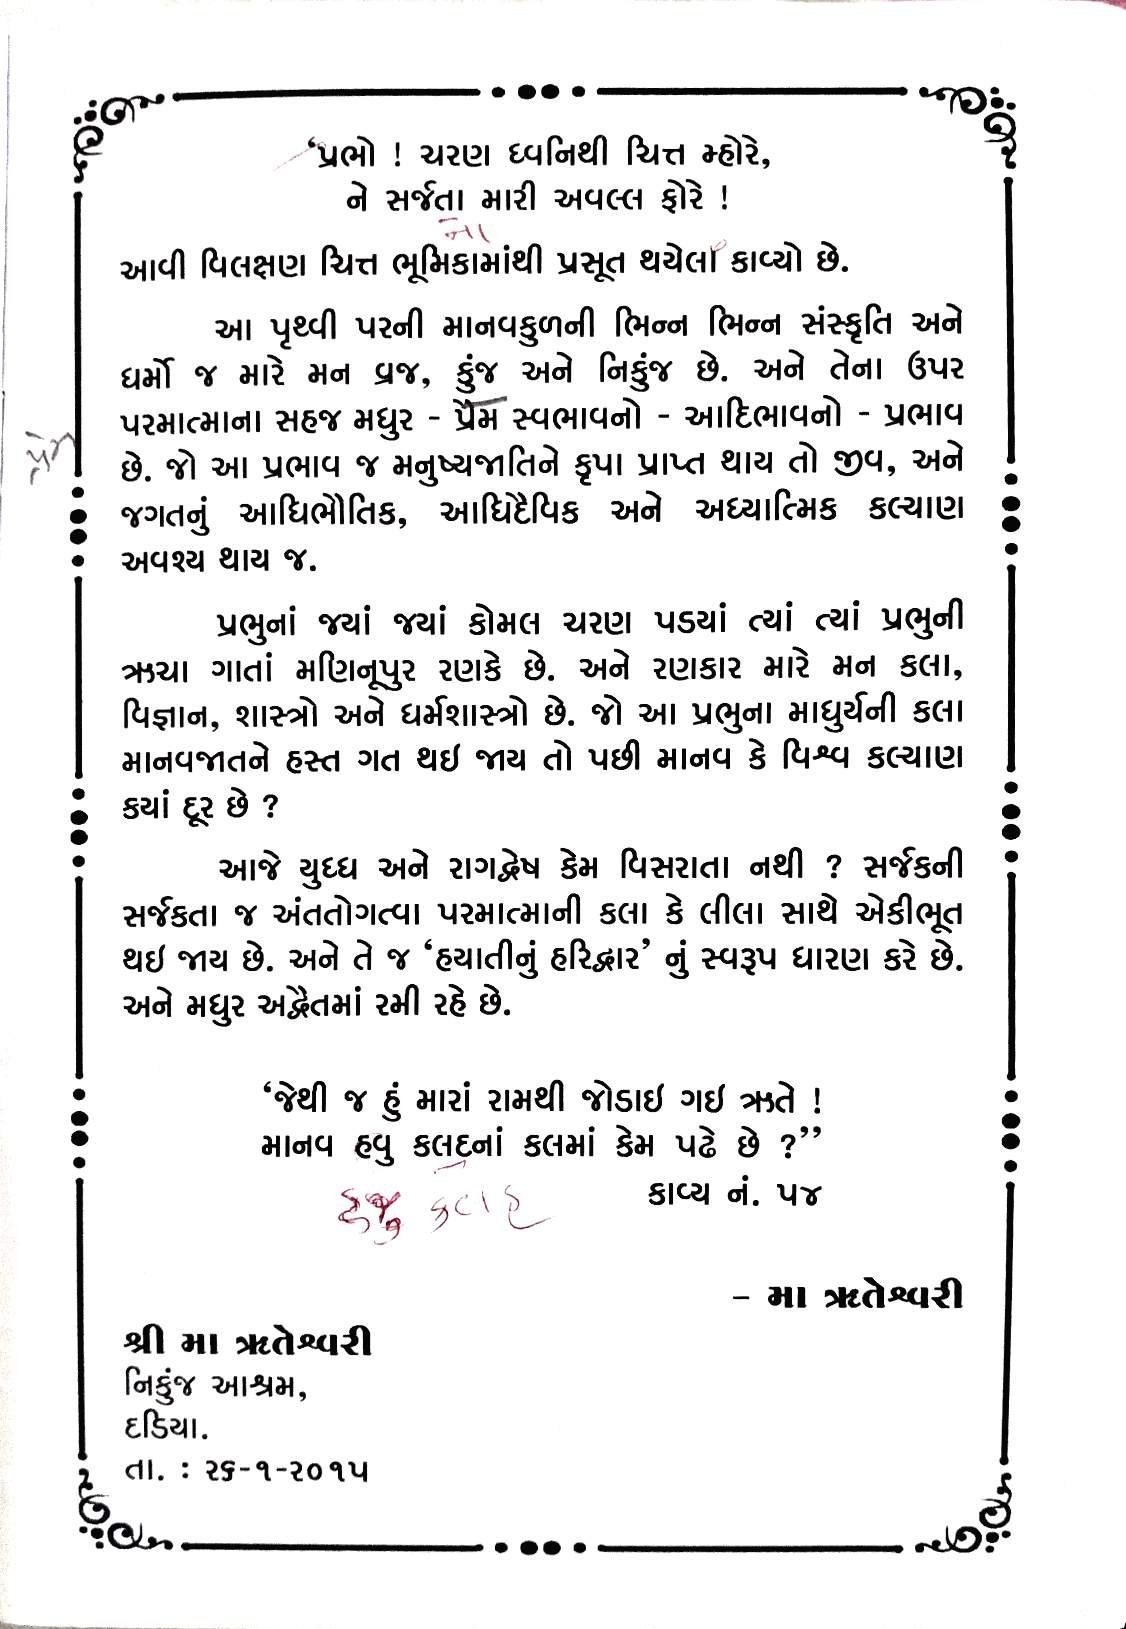 ‘પ્રભો ! ચરણ ધ્વનિથી ચિત્ત મ્હોરે,
ને સર્જતા મારી અવલ્લ ફોરે !
ના
આવી વિલક્ષણ ચિત્ત ભૂમિકામાંથી પ્રસૂત થયેલા કાવ્યો છે.
આ પૃથ્વી પરની માનવકુળની ભિન્ન ભિન્ન સંસ્કૃતિ અને
ધર્મો જ મારે મન વ્રજ, કુંજ અને નિકુંજ છે. અને તેના ઉપર
પરમાત્માના સહજ મધુર - પ્રૈમ સ્વભાવનો - આદિભાવનો - પ્રભાવ
પ્રેમ
છે. જો આ પ્રભાવ જ મનુષ્યજાતિને કૃપા પ્રાપ્ત થાય તો જીવ, અને
જગતનું આધિભૌતિક, આધિદૈવિક અને અધ્યાત્મિક કલ્યાણ
અવશ્ય થાય જ.
પ્રભુનાં જ્યાં જ્યાં કોમલ ચરણ પડયાં ત્યાં ત્યાં પ્રભુની
ઋચા ગાતાં મણિનૂપુર રણકે છે. અને રણકાર મારે મન કલા,
વિજ્ઞાન, શાસ્ત્રો અને ધર્મશાસ્ત્રો છે. જો આ પ્રભુના માધુર્યની કલા
માનવજાતને હસ્ત ગત થઇ જાય તો પછી માનવ કે વિશ્વ કલ્યાણ
કયાં દૂર છે ?
આજે યુધ્ધ અને રાગદ્વેષ કેમ વિસરાતા નથી ? સર્જકની
સર્જકતા જ અંતતોગત્વા પરમાત્માની કલા કે લીલા સાથે એકીભૂત
થઇ જાય છે. અને તે જ ‘હયાતીનું હરિદ્વાર’ નું સ્વરૂપ ધારણ કરે છે.
અને મધુર અદ્વૈતમાં રમી રહે છે.
‘જેથી જ હું મારાં રામથી જોડાઇ ગઇ ઋતે !
માનવ હવુ કલદનાં કલમાં કેમ પઢે છે ?’’
હજુ કલહ
કાવ્ય નં. ૫૪
– મા ઋતેશ્વરી
શ્રી મા ઋતેશ્વરી
નિકુંજ આશ્રમ,
દડિયા.
તા. : ૨૬-૧-૨૦૧૫